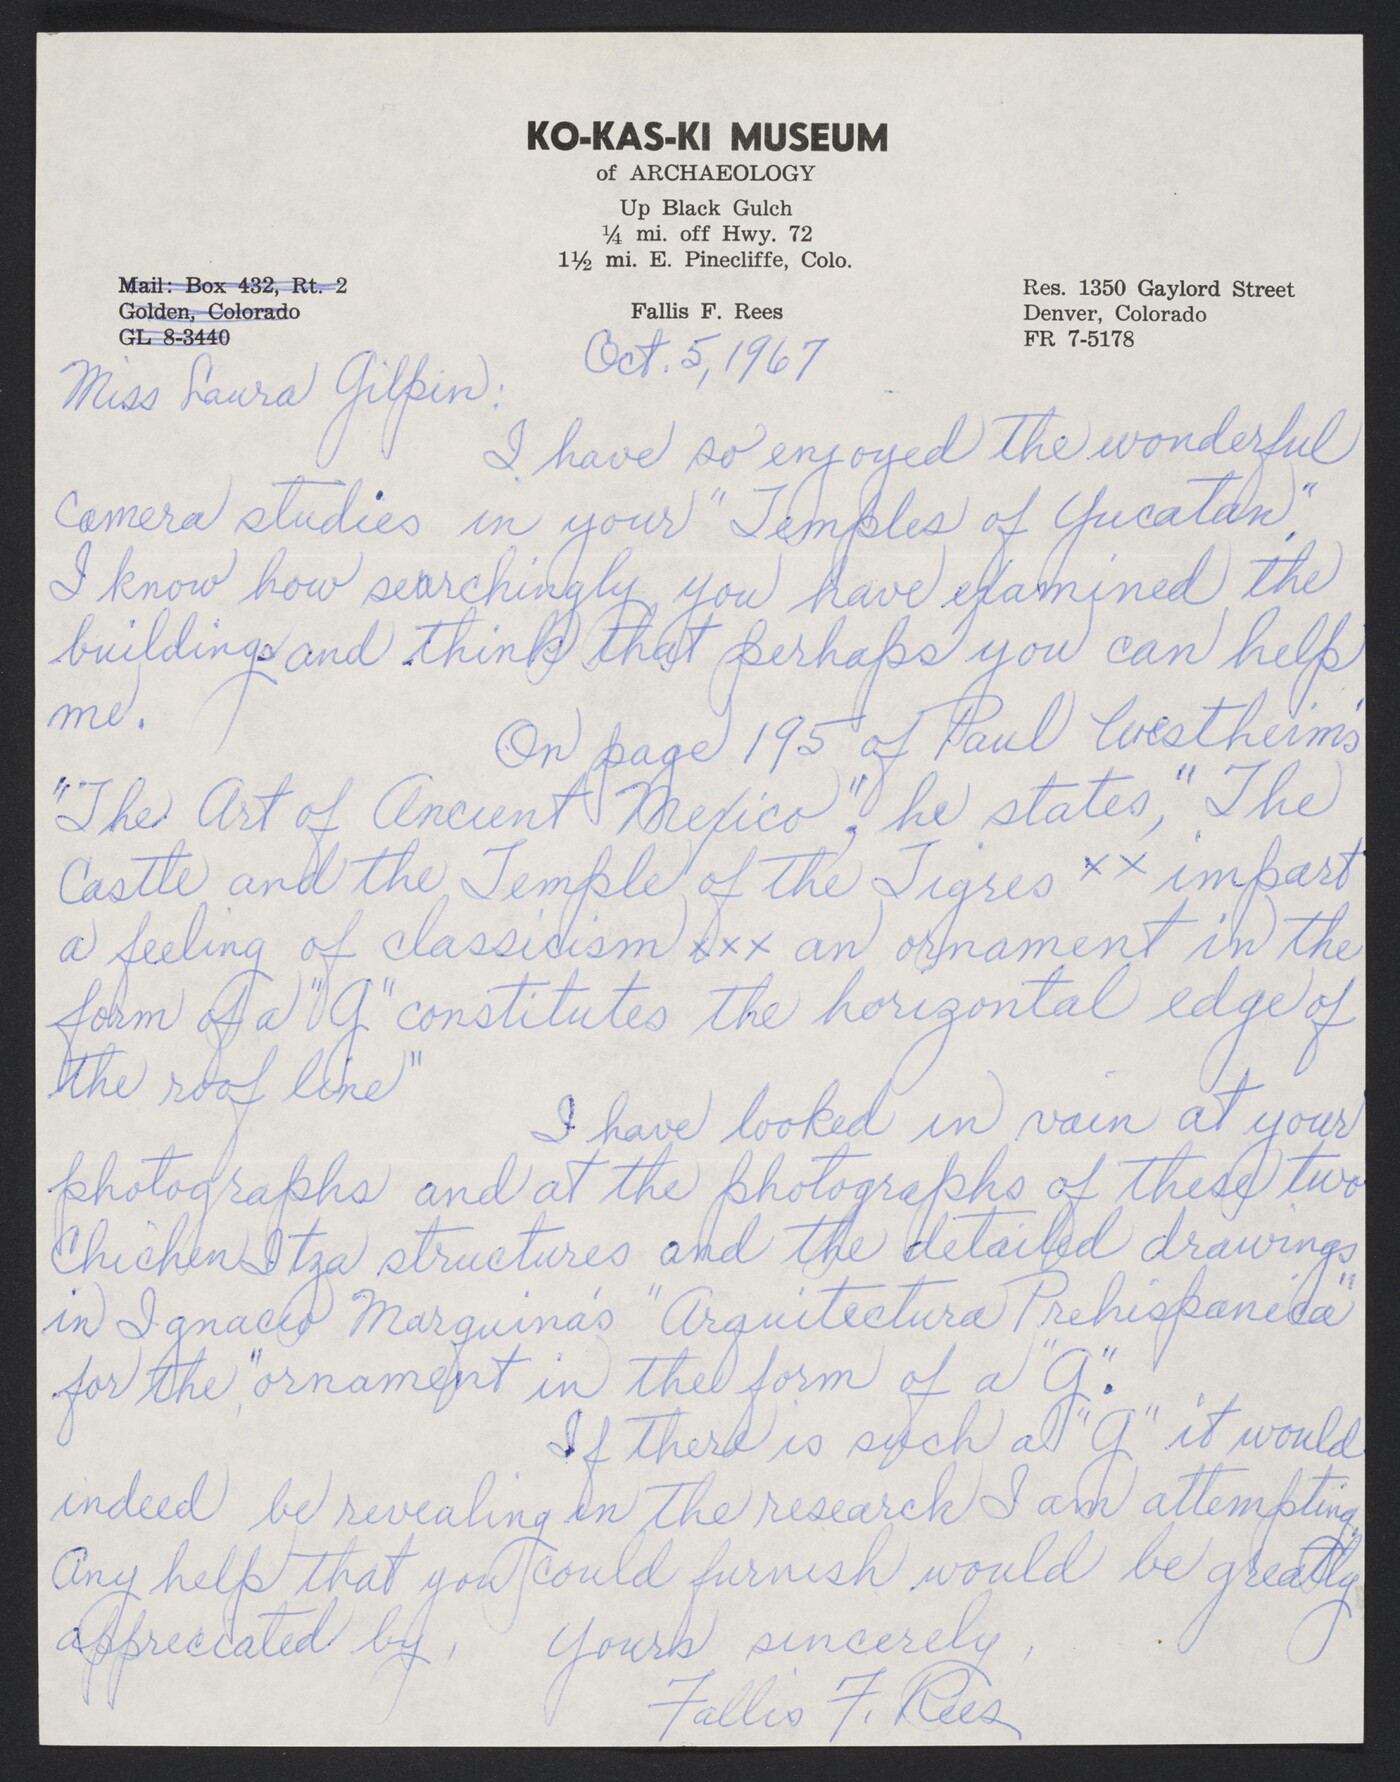 KO-KAS-KI MUSEUM
of ARCHAEOLOGY
Up Black Gulch
¼ mi. off Hwy. 72
1½ mi. E. Pinecliffe, Colo.
Mail: Box 432, Rt. 2
Golden, Colorado
GL 8-3440
Fallis F. Rees
Res. 1350 Gaylord Street
Denver, Colorado
FR 7-5178
Oct. 5, 1967
Miss Laura Gilpin:
I have so enjoyed the wonderful
camera studies in your "Temples of Yucatan".
I know how searchingly you have examined the
buildings and think that perhaps you can help
me.
On page 195 of Paul Westheim's
"The Art of Ancient Mexico", he states, "The
Castle and the Temple of the Tigres xx impart
a feeling of classicism xxx an ornament in the
form of a "G" constitutes the horizontal edge of
the roof line"
I have looked in vain at your
photographs and at the photographs of these two
Chichen Itza structures and the detailed drawings
in Ignacio Marquina's "Arquitectura Prehispanica"
for the "ornament in the form of a "G".
If there is such a "G" it would
indeed be revealing in the research I am attempting.
Any help that you could furnish would be greatly
appreciated by, Yours sincerely,
Fallis F. Rees